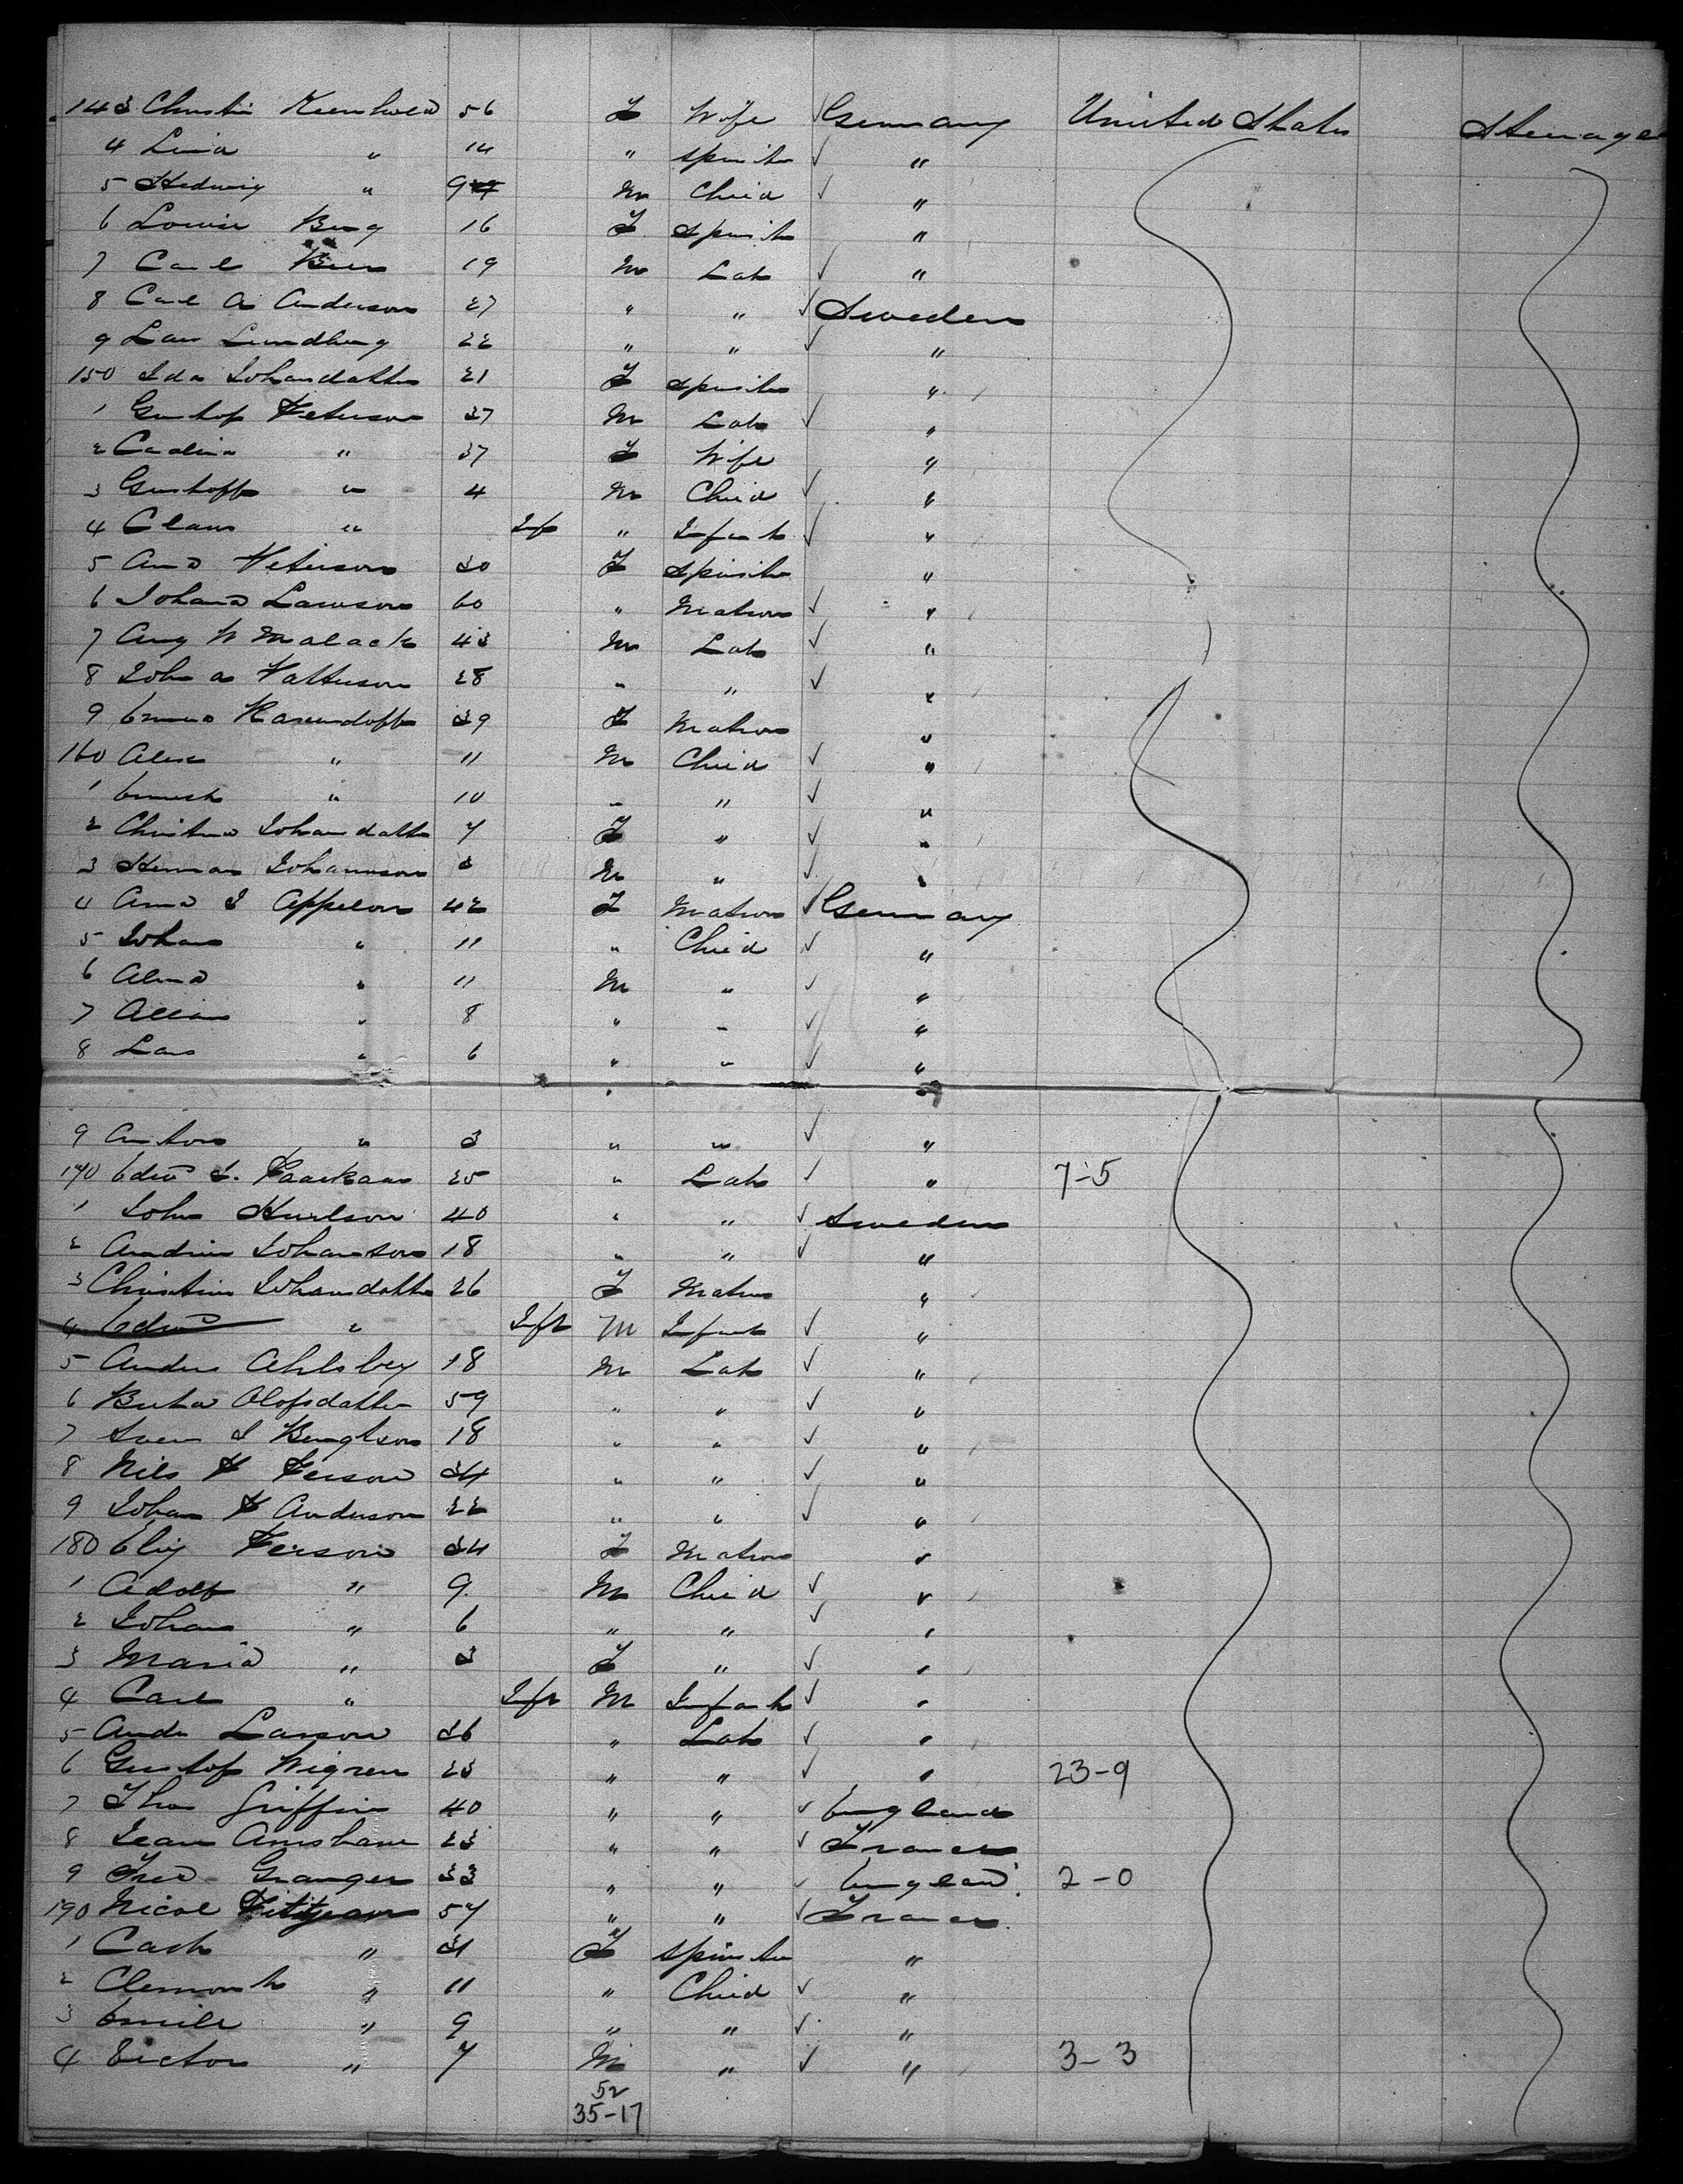 143 Christin 56 F Wife Germany United States Steerage
4 Lina " 14 " Spinster "
5 Hedwig " 9 M Child "
6 Louise Berg 16 F Spinster "
7 Carl 19 M Lab "
8 Carl A Anderson 27 " " Sweden
9 Lars Lundberg 22 " " "
150 Ida Johansdatter 21 F Spinster "
1 Gustof Peterson 37 M Lab "
2 Carolina " 37 F Wife "
3 Gustoff " 4 M Child "
4 Claus " Inf " Infant "
5 Anna Peterson 30 F Spinster "
6 Johana Lawson 60 " Matron "
7 Aug W Malack 43 M Lab "
8 John A Patterson 28 " " "
9 Emma 39 F Matron "
160 Alex " 11 M Child "
1 " 10 " " "
2 Christina Johansdatter 7 F " "
3 Herman Johannson 3 M " "
4 Anna Appelon 42 F Matron Germany
5 Johan " 11 " Child "
6 Alma " 11 M " "
7 " 8 " " "
8 Lars " 6 " " "
9 Anton " 3 " " "
170 Edw 25 " Lab " 7-5
1 John 40 " " Sweden
2 Johanson 18 " " "
3 Christina Johansdatter 26 F Matron "
4 Edw " Inft M Infant "
5 Anders Ahlsbey 18 M Lab "
6 Olofsdatter 59 " " "
7 Sven Bengtson 18 " " "
8 Nils P Person 34 " " "
9 Johan P Anderson 22 " " "
180 Person 34 F Matron "
1 Adolf " 9 M Child "
2 Johan " 6 " " "
3 Maria " 3 F " "
4 Carl " Inft M Infant "
5 Larson 36 " Lab "
6 Gustof Wigren 23 " " " 23-9
7 Thos Griffin 40 " " England
8 Jean 23 " " France
9 Fred Granger 33 " " England 2-0
190 Nicol Petitjean 57 " " France
1 " F Spinster "
2 " 11 " Child "
3 Emile " 9 " " "
4 Victor " 7 M " " 3-3
52
35-17